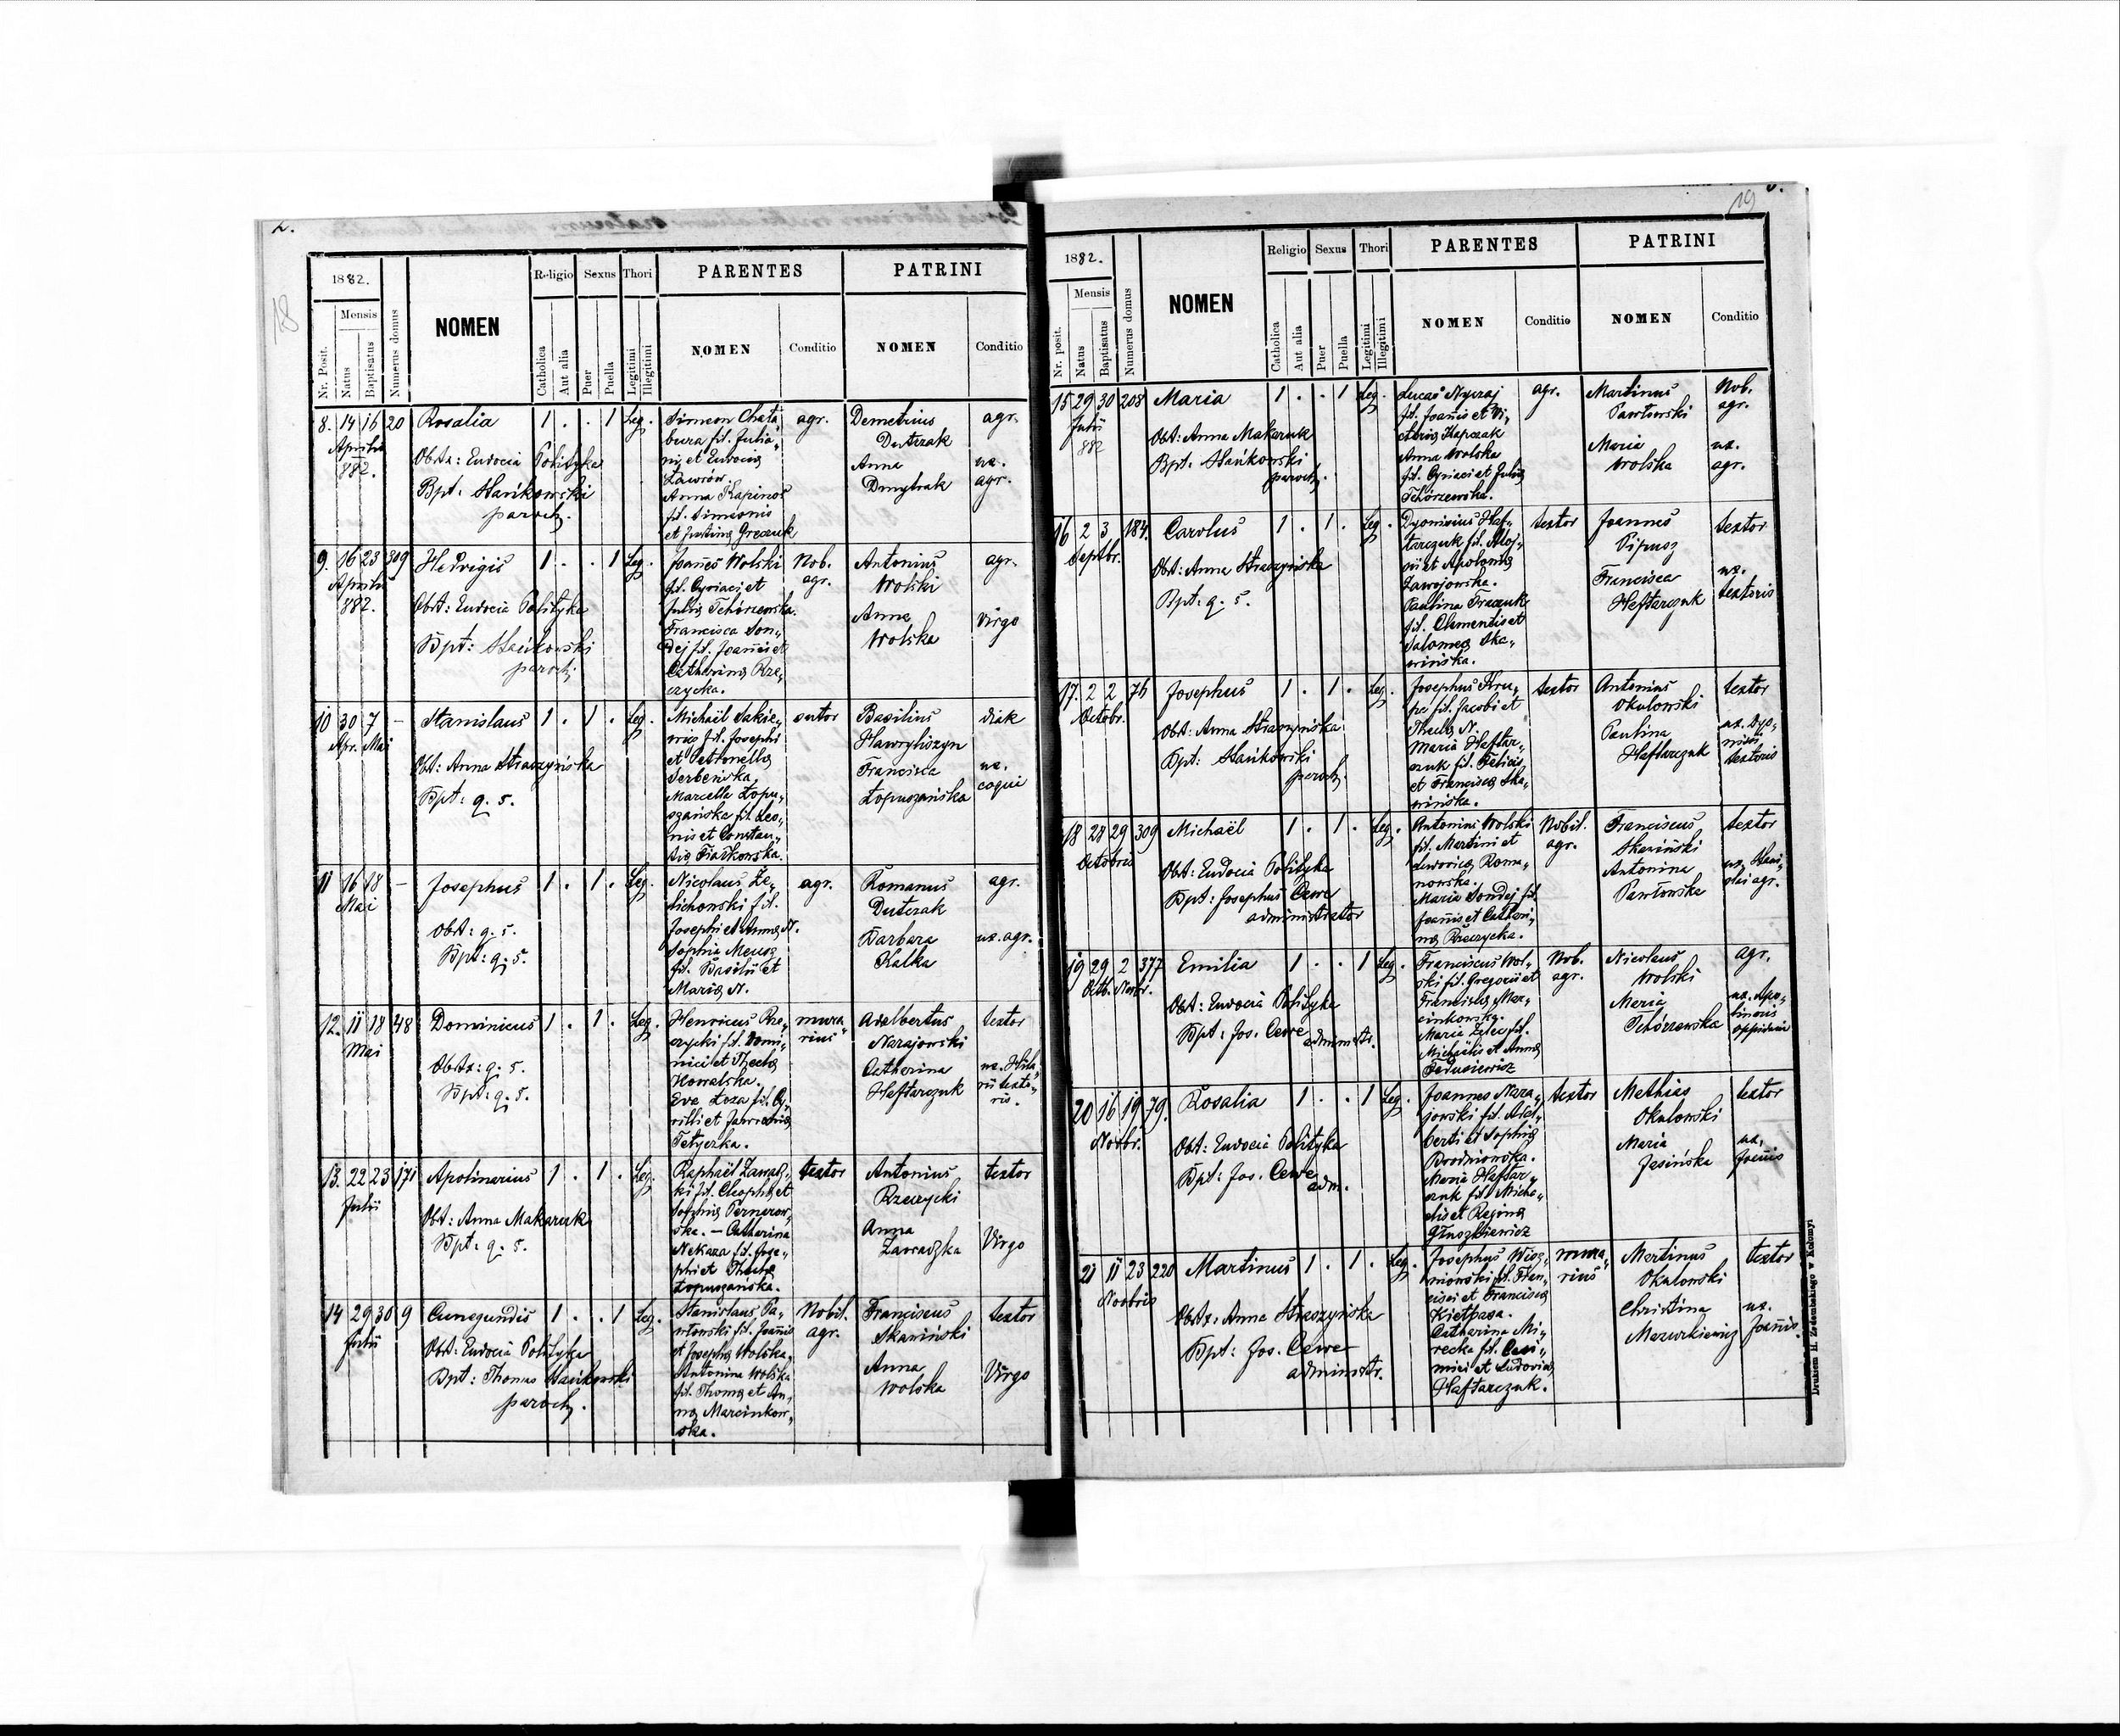 2.
18
1882.
Nr. Posit.
Mensis
Natus
Baptisatus
Numerus domus
NOMEN
Religio
Catholica
Aut alia
Sexus
Puer
Puella
Thori
Legitimi
Illegitimi
PARENTES
NOMEN
Conditio
PATRINI
NOMEN
Conditio
8. 14 16 20 Rosalia 1 . . 1 Leg.
Aprilis
882.
Obstx: Eudocia Polityka
Bpt: Stańkowski
paroch.
Simeon Chata„
bura fil. Julia„
ni et Eudocia
Ławrów.
Anna Kapinos
fil. Simeonis
et Justina Greczuk
agr.
Demetrius
Dutczak
Anna
Dmytrak
agr.
ux.
agr.
9. 16 23 309 Hedvigis 1 . . 1 Leg.
Aprilis
882.
Obst: Eudocia Polityka
Bpt: Stańkowski
paroch.
Joañes Wolski
fil. Cyriaci et
Julia Tchórzewska.
Francisca Son„
dej fil. Joañis et
Catharina Rze„
czycka.
Nob.
agr.
Antonius
Wolski
Anna
Wolska
agr.
Virgo
10 30 7 – Stanislaus 1 . 1 . Leg.
Apr. Mai
Obst: Anna Straszyńska
Bpt: q. s.
Michaël Sakie„
wicz fil. Josephi
et Petronella
Serbeńska.
Marcella Łopu„
szańska fil. Leo„
nis et Constan„
tia Fiałkowska.
sutor
Basilius
Hawryliszyn
Francisca
Łopuszańska
diak
ux.
coqui
11 16 18 – Josephus 1 . 1 . Leg.
Mai
Obst: q. s.
Bpt: q. s.
Nicolaus Że„
lichowski fil.
Josephi et Anna N.
Sophia Meusz
fil. Basilii et
Maria N.
agr.
Romanus
Dutczak
Barbara
Kalka
agr.
ux. agr.
12. 11 18 48 Dominicus 1 . 1 . Leg.
Mai
Obstx: q. s.
Bpt: q. s.
Henricus Rze„
czycki fil. Domi„
nici et Thecla
Kowalska.
Eva Łoza fil. Cy„
rilli et
Tetyczka.
mura„
rius
Adelbertus
Narajowski
Catharina
Haftarczuk
textor
ux. Hila„
rii texto„
ris.
13. 22 23 171 Apolinarius 1 . 1 . Leg.
Julii
Obst: Anna Makaruk
Bpt: q. s.
Raphaël Zawadz„
ki fil. Cleopha et
Sophia Pernerow„
ska. – Catharina
Nekaza fil. Jose„
phi et Thecla
Łopuszańska.
textor
Antonius
Rzeczycki
Anna
Zawadzka
textor
Virgo
14 29 30 9 Cunegundis 1 . . 1 Leg.
Julii
Obst: Eudocia Polityka
Bpt: Thomas Stańkowski
paroch.
Stanislaus Pa„
włowski fil. Joañis
et Josepha Wolska.
Antonina Wolska
fil. Thoma et An„
na Marcinkow„
ska.
Nobil.
agr.
Franciscus
Skawiński
Anna
Wolska
textor
Virgo
19
1882.
Nr. posit.
Mensis
Natus
Baptisatus
Numerus domus
NOMEN
Religio
Catholica
Aut alia
Sexus
Puer
Puella
Thori
Legitimi
Illegitimi
PARENTES
NOMEN
Conditio
PATRINI
NOMEN
Conditio
15 29 30 208 Maria 1 . . 1 Leg.
Julii
882
Obst: Anna Makaruk
Bpt: Stańkowski
paroch.
Lucas Nyczaj
fil. Joañis et Vi„
ctoria Kapczak
Anna Wolska
fil. Cyriaci et Julia
Tchórzewska.
agr.
Martinus
Pawłowski
Maria
Wolska
Nob.
agr.
ux.
agr.
16 2 3 184. Carolus 1 . 1 . Leg.
Septbr.
Obst: Anna Straszyńska
Bpt: q. s.
Dyonisius Haf„
tarczuk fil. Aloj„
sii et Apolonia
Zawojowska.
Paulina Traczuk
fil. Clementis et
Salomea Ska„
wińska.
textor
Joannes
Pipusz
Francisca
Haftarczuk
textor
ux.
textoris
17. 2 2 76 Josephus 1 . 1 . Leg.
Octobr.
Obst: Anna Straszyńska
Bpt: Stańkowski
paroch.
Josephus Kru„
pa fil. Jacobi et
Thecla N.
Maria Haftar„
czuk fil. Felicis
et Francisca Ska„
wińska.
textor
Antonius
Okulowski
Paulina
Haftarczuk
textor
ux. Dyo„
nisii
textoris
18 28 29 309 Michaël 1 . 1 . Leg.
Octobris
Obst: Eudocia Polityka
Bpt: Josephus Cewe
administrator
Antonius Wolski
fil. Martini et
Ludovica Roma„
nowska.
Maria Sondej fil.
Joañis et Cathari„
na Rzeczycka.
Nobil.
agr.
Franciscus
Skawiński
Antonina
Pawłowska
textor
ux. Stani„
slai agr.
19 29 2 377 Emilia 1 . . 1 Leg.
Octb. Novbr.
Obst: Eudocia Polityka
Bpt: Jos. Cewe
administr.
Franciscus Wol„
ski fil. Gregorii et
Francisca Mar„
cinkowska.
Maria Zelec fil.
Michaëlis et Anna
Fedusiewicz
Nob.
agr.
Nicolaus
Wolski
Maria
Tchórzewska
agr.
ux. Apo„
linaris
oppidani
20 16 19 79. Rosalia 1 . . 1 Leg.
Novbr.
Obst: Eudocia Polityka
Bpt: Jos. Cewe
adm.
Joannes Nara„
jowski fil. Adel„
berti et Sophia
Brodniowska.
Maria Haftar„
czuk fil. Micha„
elis et Regina
Głuszkiewicz
textor
Mathias
Okulowski
Maria
Jasińska
textor
ux.
Joañis
21 11 23 220 Martinus 1 . 1 . Leg.
Novbris
Obstx: Anna Straszyńska
Bpt: Jos. Cewe
administr.
Josephus Wisz„
niowski fil. Fran„
cisci et Francisca
Kiełbasa.
Catharina Mi„
recka fil. Casi„
miri et Ludovica
Haftarczuk.
mura„
rius
Martinus
Okulowski
Christina
Mazurkiewicz
textor
ux.
Joañis.
Drukiem H. Zadembskiego w Kołomyi